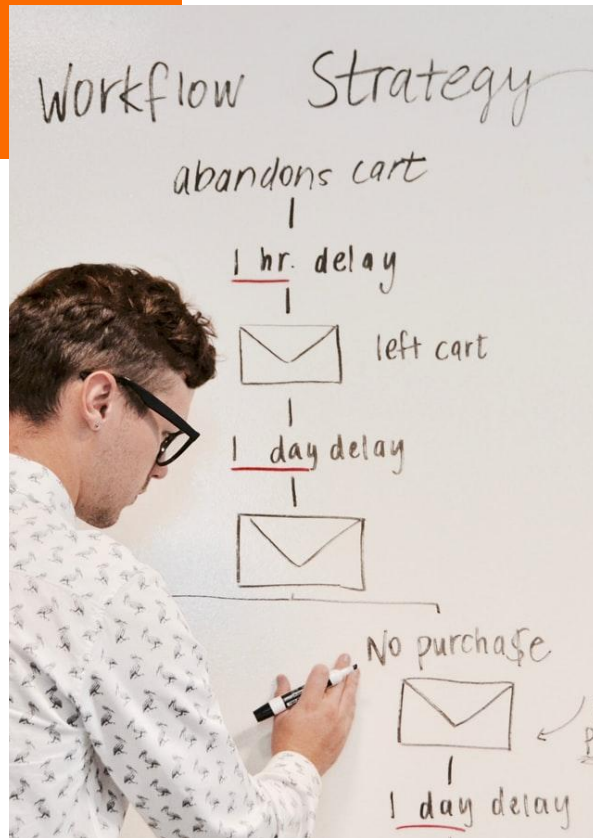 Workflow Strategy
abandons cart
1 hr. delay
left cart
1 day delay
No purcha$e
1 day delay